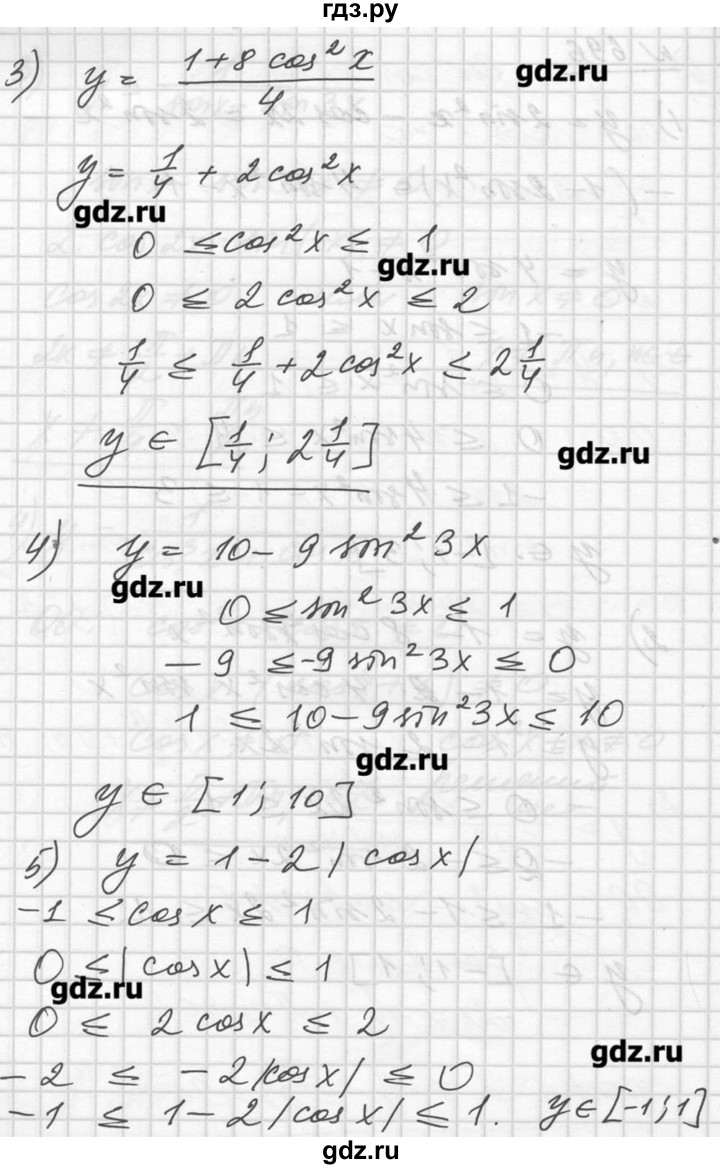 гдз.ру
3) y = (1+8 cos² x)/4
gdz.ru
y = 1/4 + 2cos²x
gdz.ru
0 ≤ cos²x ≤ 1
gdz.ru
0 ≤ 2 cos²x ≤ 2
1/4 ≤ 1/4 + 2 cos²x ≤ 2 1/4
y ∈ [1/4; 2 1/4]
gdz.ru
4) y = 10 - 9 sin² 3x
gdz.ru
0 ≤ sin² 3x ≤ 1
- 9 ≤ -9 sin² 3x ≤ 0
1 ≤ 10 - 9 sin² 3x ≤ 10
gdz.ru
y ∈ [1; 10]
5) y = 1 - 2 | cos x |
-1 ≤ cos x ≤ 1
0 ≤ | cos x | ≤ 1
gdz.ru
0 ≤ 2 cos x ≤ 2
gdz.ru
- 2 ≤ - 2 |cos x| ≤ 0
- 1 ≤ 1 - 2 |cos x| ≤ 1. y ∈ [-1; 1]
gdz.ru